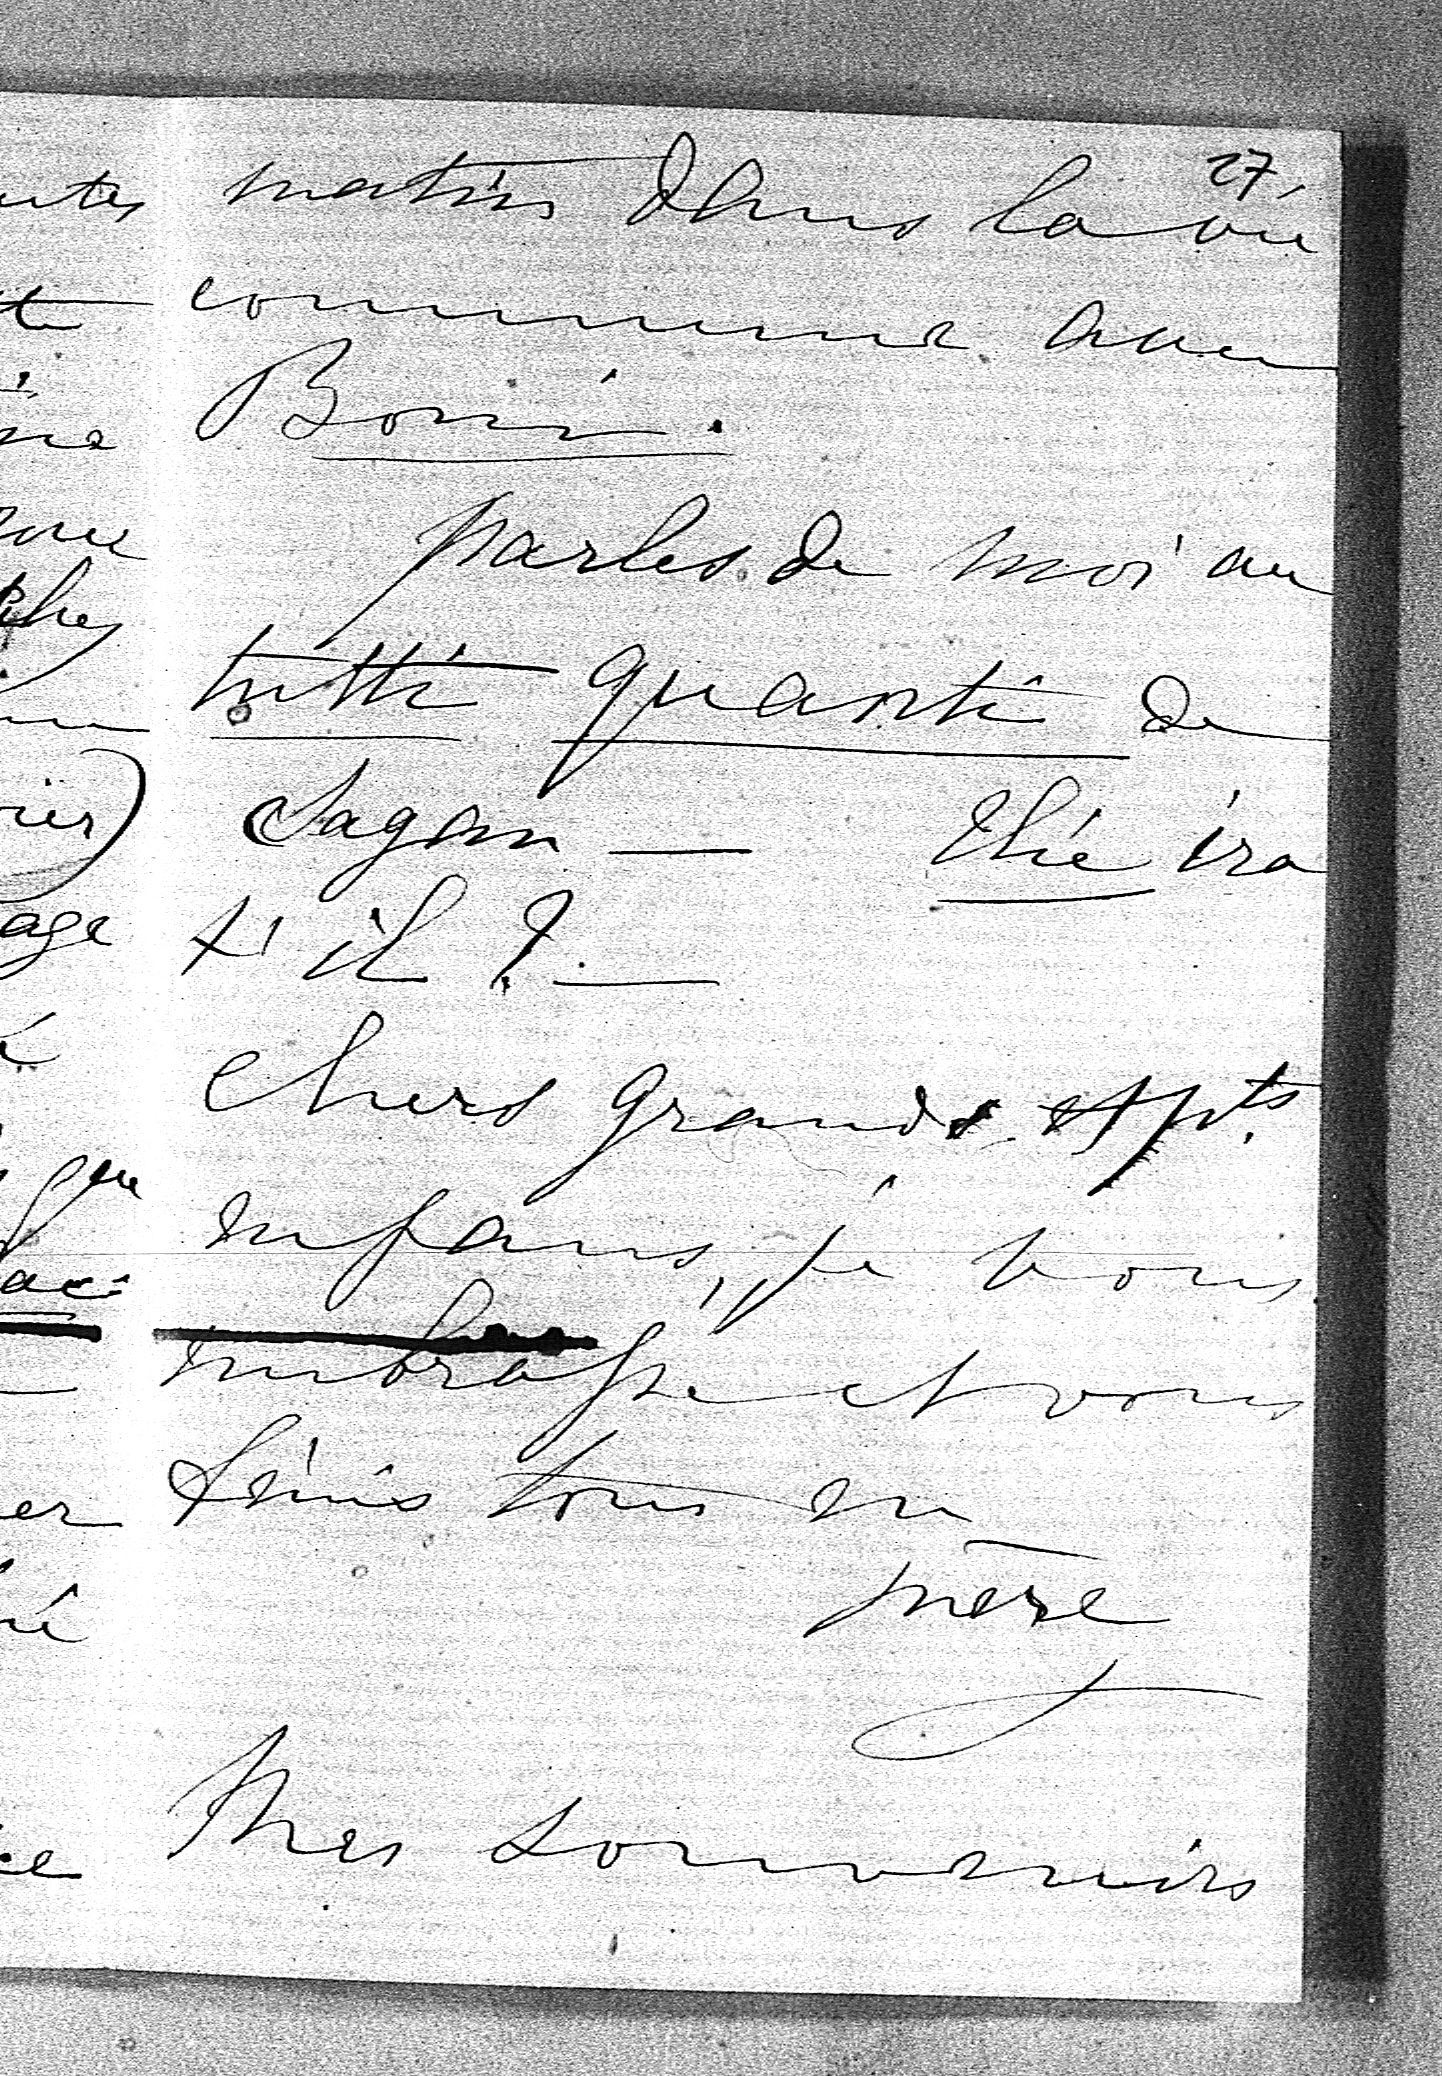 27,
matin dans la vie
commune avec
Boni.
parles de moi au
tutti quanti de
Sagan —
thie ira
t'il ? —
chers grands et pts
enfans, je vous
embrasse et vous
bénis tous en
mère
Mes souvenirs